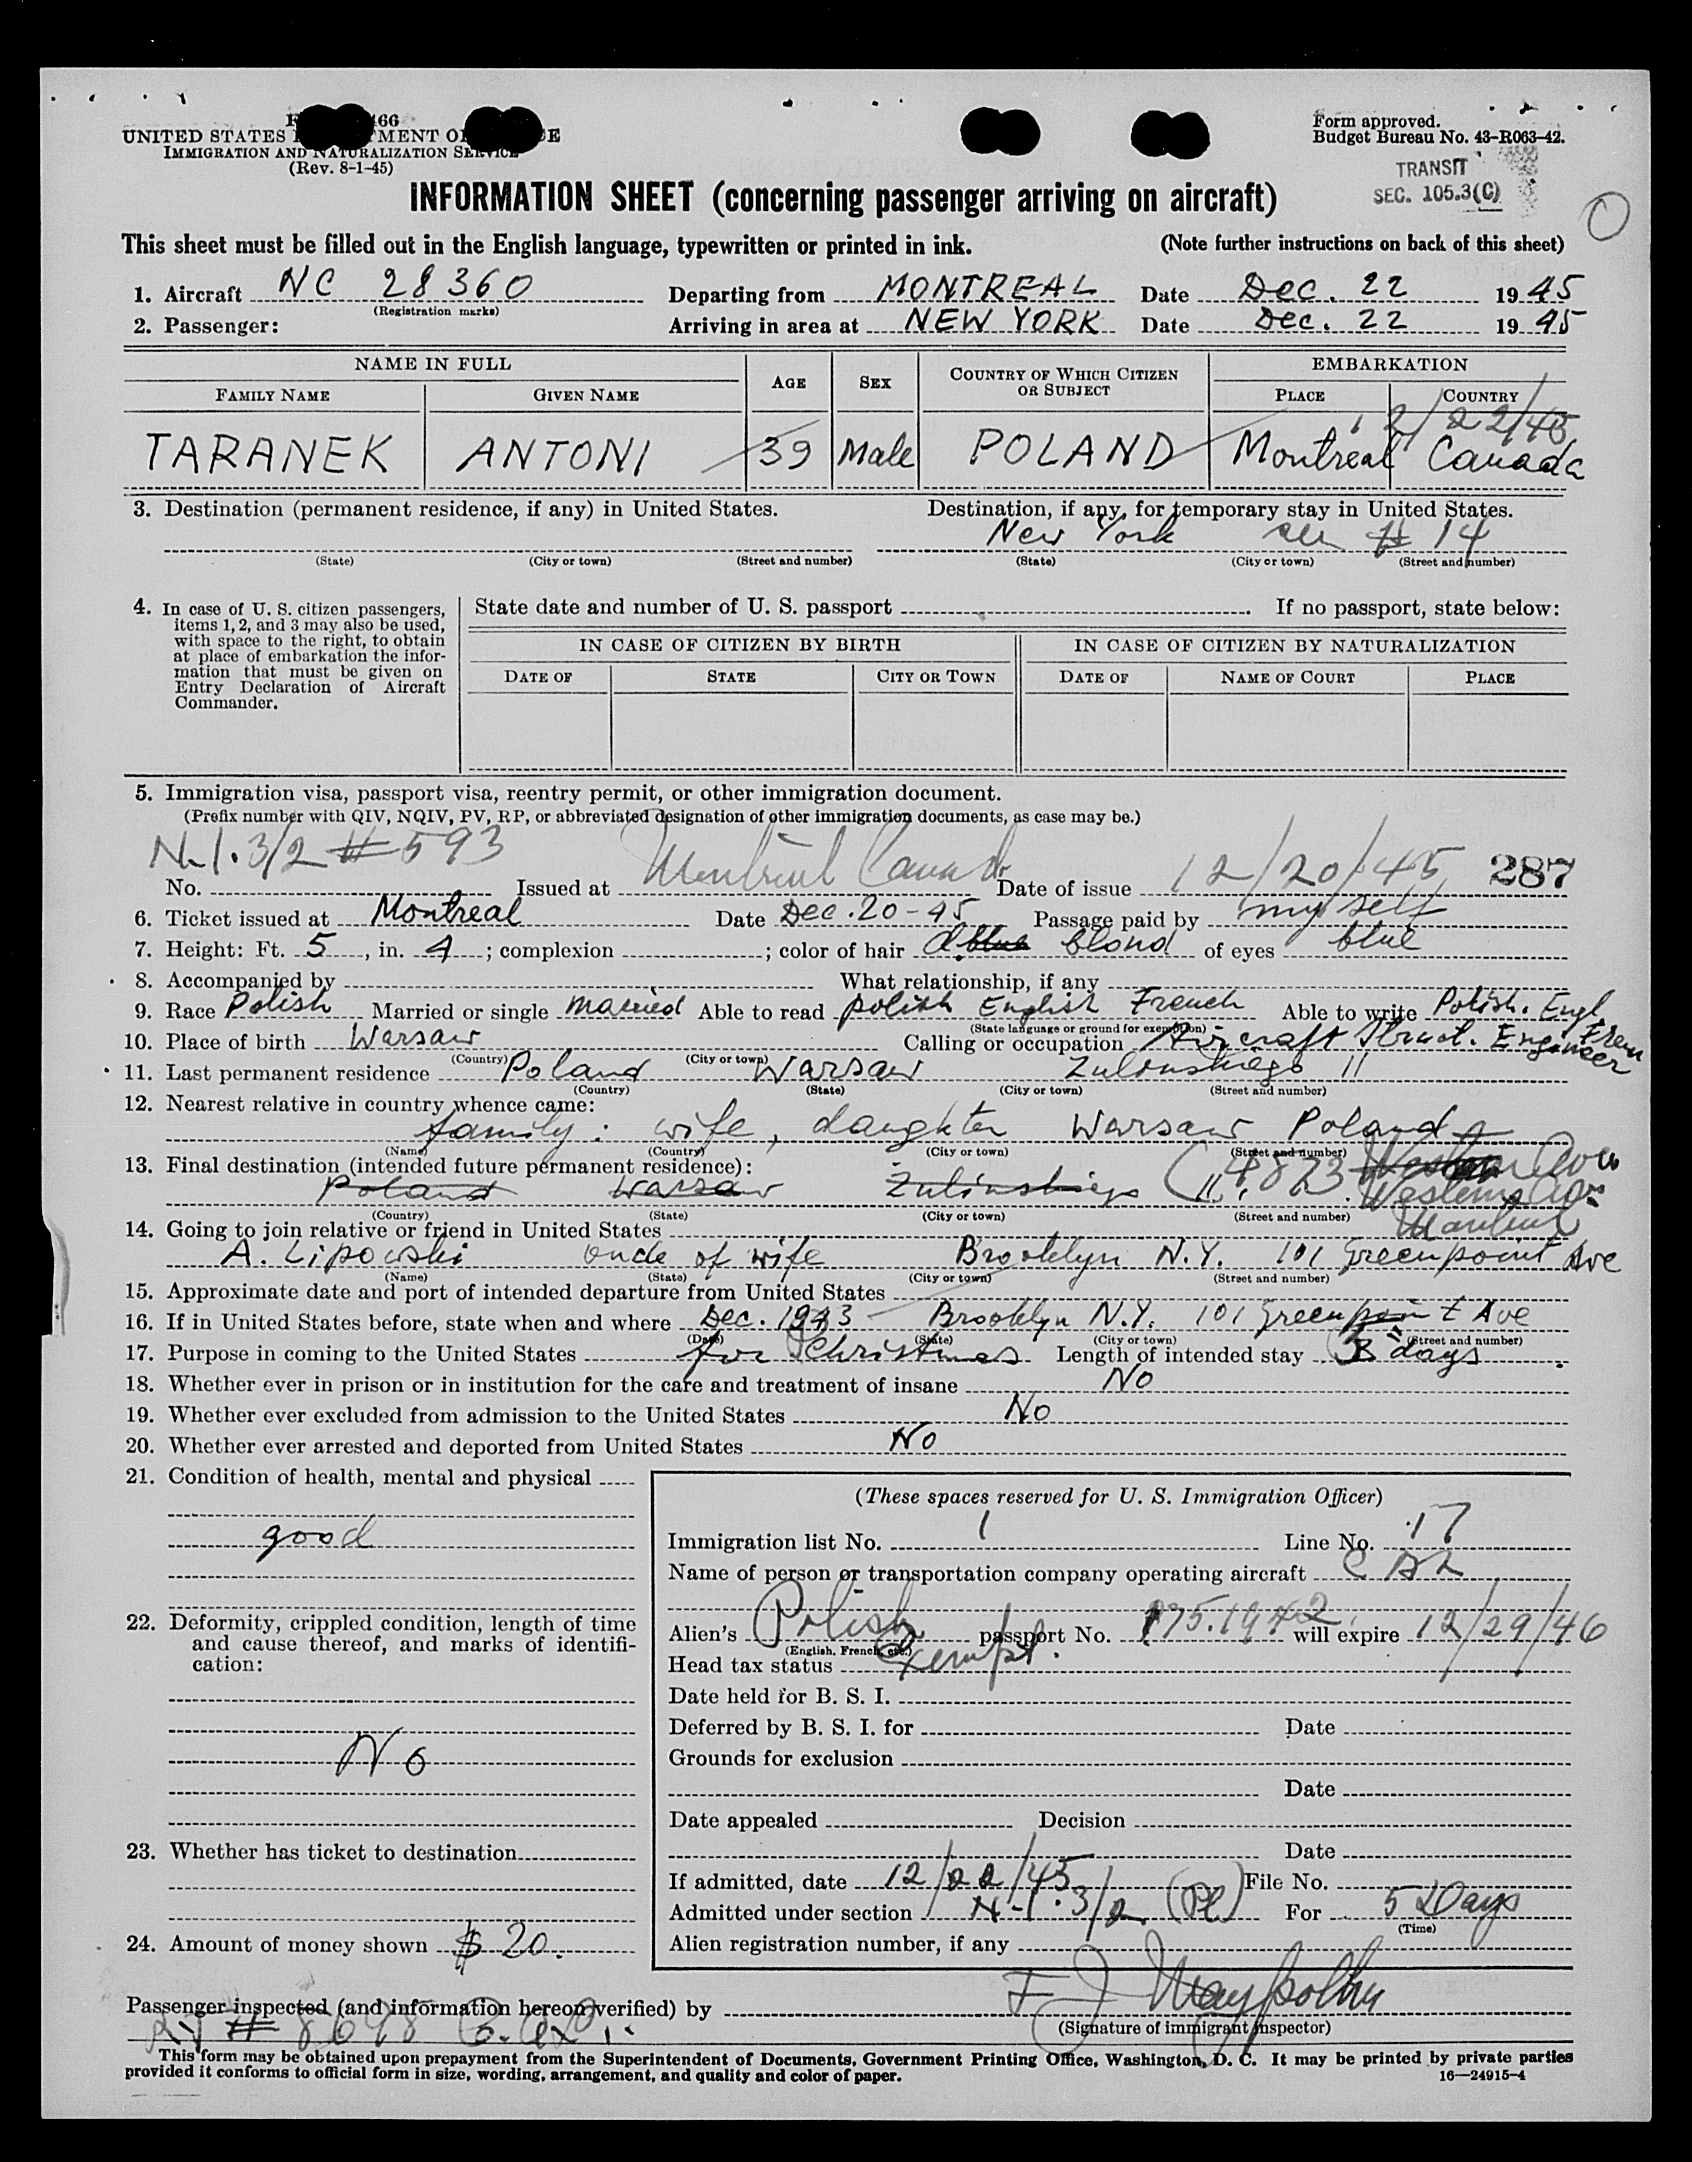 UNITED STATES
IMMIGRATION AND NATURALIZATION SERVICE
(Rev. 8-1-45)
Form approved.
Budget Bureau No. 43-R063-42.
TRANSIT
SEC. 105.3(C)
INFORMATION SHEET (concerning passenger arriving on aircraft)
This sheet must be filled out in the English language, typewritten or printed in ink. (Note further instructions on back of this sheet)
1. Aircraft NC 28360 Departing from MONTREAL Date Dec. 22 1945
(Registration marks)
2. Passenger: Arriving in area at NEW YORK Date Dec. 22 1945
NAME IN FULL AGE SEX COUNTRY OF WHICH CITIZEN OR SUBJECT EMBARKATION
FAMILY NAME GIVEN NAME PLACE COUNTRY
12/22/45
TARANEK ANTONI 39 Male POLAND Montreal Canada
3. Destination (permanent residence, if any) in United States. Destination, if any, for temporary stay in United States.
New York # 14
(State) (City or town) (Street and number) (State) (City or town) (Street and number)
4. In case of U. S. citizen passengers, items 1, 2, and 3 may also be used, with space to the right, to obtain at place of embarkation the information that must be given on Entry Declaration of Aircraft Commander.
State date and number of U. S. passport If no passport, state below:
IN CASE OF CITIZEN BY BIRTH IN CASE OF CITIZEN BY NATURALIZATION
DATE OF STATE CITY OR TOWN DATE OF NAME OF COURT PLACE
5. Immigration visa, passport visa, reentry permit, or other immigration document.
(Prefix number with QIV, NQIV, PV, RP, or abbreviated designation of other immigration documents, as case may be.)
No. N-1.3/2 # 593 Issued at Montreal Canada Date of issue 12/20/45 287
6. Ticket issued at Montreal Date Dec. 20-45 Passage paid by my self
7. Height: Ft. 5, in. 4; complexion ; color of hair d. blond of eyes blue
8. Accompanied by What relationship, if any
9. Race Polish Married or single married Able to read polish English French Able to write Polish. Engl Fren
(State language or ground for exemption)
10. Place of birth Warsaw Calling or occupation Aircraft Struct. Engineer
(Country) (City or town)
11. Last permanent residence Poland Warsaw Zulinskiego 11
(Country) (State) (City or town) (Street and number)
12. Nearest relative in country whence came:
family: wife, daughter Warsaw Poland
(Name) (Country) (City or town) (Street and number)
13. Final destination (intended future permanent residence):
Poland Warsaw Zulinskiego 11. 4873 Western Ave
Montreal
(Country) (State) (City or town) (Street and number)
14. Going to join relative or friend in United States
A. Lipowski uncle of wife Brooklyn N.Y. 101 Greenpoint Ave
(Name) (State) (City or town) (Street and number)
15. Approximate date and port of intended departure from United States
16. If in United States before, state when and where Dec. 1943 - Brooklyn N.Y. 101 Greenpoint Ave
(Date) (State) (City or town) (Street and number)
17. Purpose in coming to the United States for Christmas Length of intended stay days
18. Whether ever in prison or in institution for the care and treatment of insane No
19. Whether ever excluded from admission to the United States No
20. Whether ever arrested and deported from United States No
21. Condition of health, mental and physical
good
22. Deformity, crippled condition, length of time and cause thereof, and marks of identification:
No
23. Whether has ticket to destination
24. Amount of money shown $ 20.
(These spaces reserved for U. S. Immigration Officer)
Immigration list No. 1 Line No. 17
Name of person or transportation company operating aircraft
Alien's Polish passport No. will expire 12/29/46
(English, French, etc.)
Head tax status Exempt.
Date held for B. S. I.
Deferred by B. S. I. for Date
Grounds for exclusion
Date
Date appealed Decision
Date
If admitted, date 12/22/45 File No.
Admitted under section N-1.3/2. (Pl) For 5 Days
(Time)
Alien registration number, if any
Passenger inspected (and information hereon verified) by
(Signature of immigrant inspector)
This form may be obtained upon prepayment from the Superintendent of Documents, Government Printing Office, Washington, D. C. It may be printed by private parties
provided it conforms to official form in size, wording, arrangement, and quality and color of paper.
16—24915-4